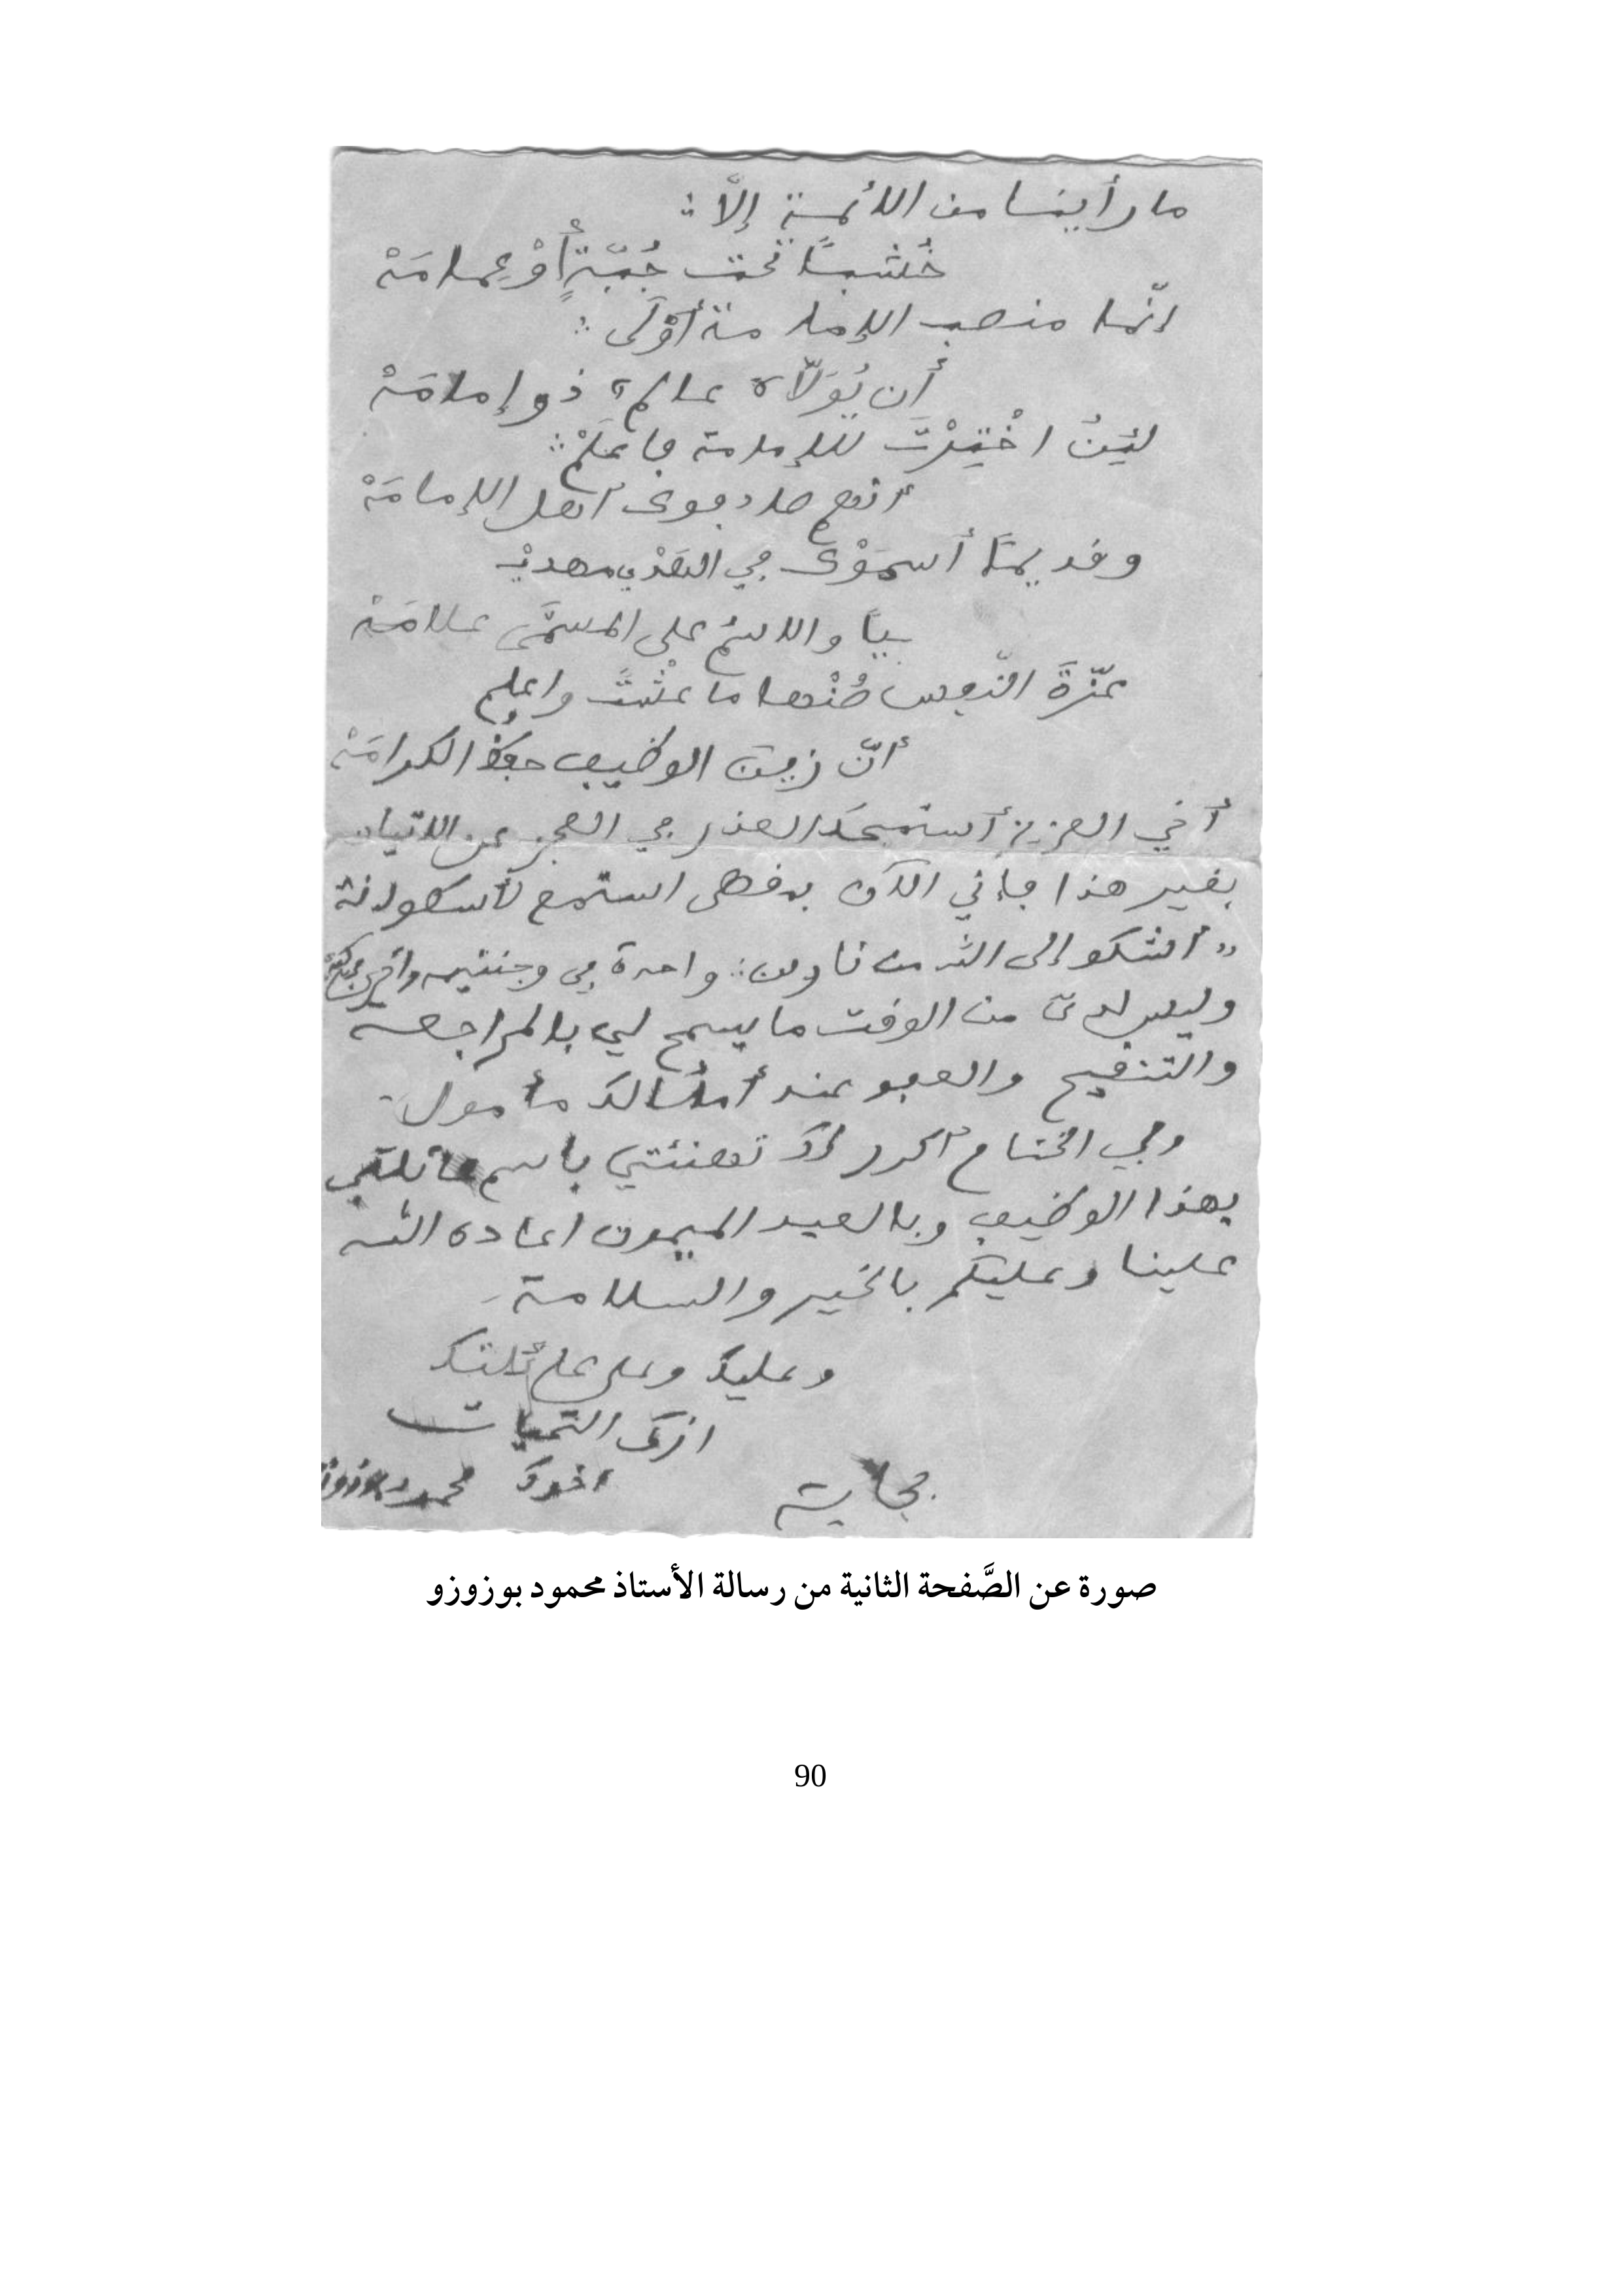 ما رأينا من الأئمة إلّا :
خُشباً تحت جُبّةٍ أَوْ عِمامَهْ
إنّما منصب الإمامة أَوْلَى :
أن يُوَلّاهُ عالمٌ ذو إمامَهْ
لئِنُ اخْتِرْتَ للإمامة فاعلَمْ :
أنهم صادفوا أهل الإمامَهْ
وقديماً أسمَوْكَ في المَهْدِ مهديْـ
ـيا والاسمُ على المسمَّى علامَهْ
عزّةَ النّفس صُنْها ما عشْتَ واعلم
أنّ زينَ الوظيف حفظُ الكرامَهْ
أخي العزيز أستمحك العذر في العجز عن الإتيان
بغير هذا فإني الآن بدفصى استمع لأسطوانة
"أشكو إلى الله من نارين : واحدة في وجنتيه وأخرى
وليس لديّ من الوقت ما يسمح لي بالمراجعة
والتنقيح والعفو عند أمثالك مأمول .
وفي الختام أكرر لك تهنئتي باسم عائلتي
بهذا الوظيف وبالعيد الميمون أعاده الله
علينا وعليكم بالخير والسلامة .
وعليك وعلى عائلتك
ازكى التحيات
بجاية أخوك محمود بوزوزو
صورة عن الصَّفحة الثانية من رسالة الأستاذ محمود بوزوزو
90